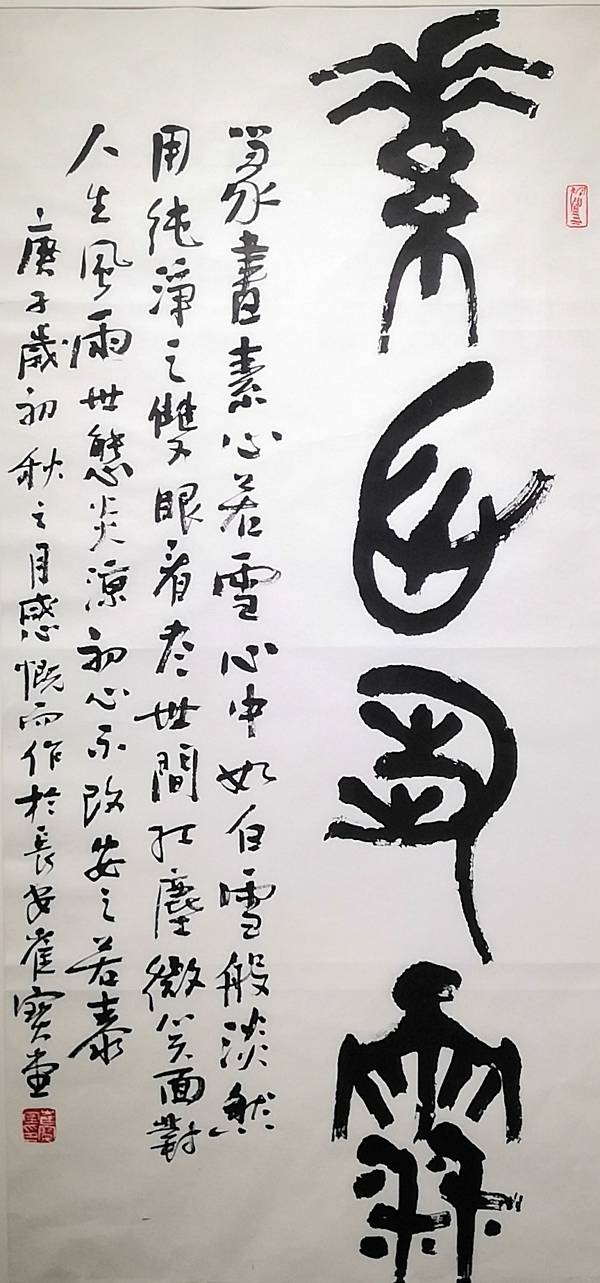 素心若雪
篆書素心若雪心中如白雪般淡然
用純淨之雙眼看盡世間紅塵微笑面對
人生風雨世態炎涼初心不改安之若泰
庚子歲初秋之月感慨而作於長安崔寶堂